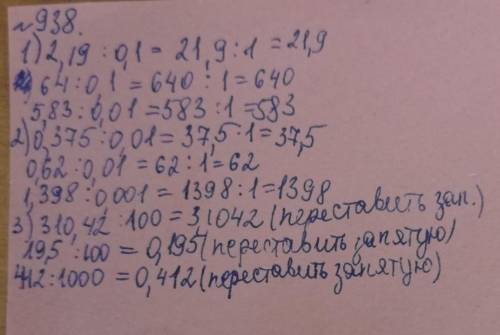 №938.
1) 2,19 : 0,1 = 21,9 : 1 = 21,9
64 : 0,1 = 640 : 1 = 640
5,83 : 0,01 = 583 : 1 = 583
2) 0,375 : 0,01 = 37,5 : 1 = 37,5
0,62 : 0,01 = 62 : 1 = 62
1,398 : 0,001 = 1398 : 1 = 1398
3) 310,42 : 100 = 3,1042 (переставить зап.)
19,5 : 100 = 0,195 (переставить запятую)
412 : 1000 = 0,412 (переставить запятую)